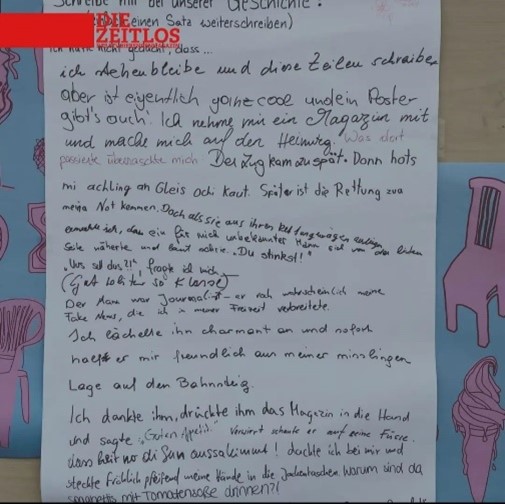 Schreibe mit bei unserer Geschichte!
einen Satz weiterschreiben)
DIE
ZEITLOS
Ich hätte nicht gedacht, dass ...
ich stehenbleibe und diese Zeilen schreibe
aber ist eigentlich ganz cool und ein Poster
gibt's auch! Ich nehme mir ein Magazin mit
und mache mich auf den Heimweg. Was dort
passierte überraschte mich. Der Zug kam zu spät. Dann hots
mi achling an Gleis ochi kaut. Später ist die Rettung zua
meina Not kemmen. Doch als sie aus ihren Rettungswägen
ich, das ein für mich unbekannter Mann
Seite näherte und laut schrie „Du stinkst!"
fragte ich mich
Der Mann war Journalist - er sah wahrscheinlich meine
Fake News, die ich in meiner Freizeit verbreitete.
Ich lächelte ihn charmant an und sofort
half er mir freundlich aus meiner misslingen
Lage auf den Bahnsteig.
Ich dankte ihm, drückte ihm das Magazin in die Hand
und sagte „Guten Appetit." Verwirrt schaute er auf seine Füsse.
dass heit no di Sun aussakimmt! dachte ich bei mir und
steckte fröhlich pfeifend meine Hände in die Jackentaschen. Warum sind da
spaghettis mit Tomatensoße drinnen?!